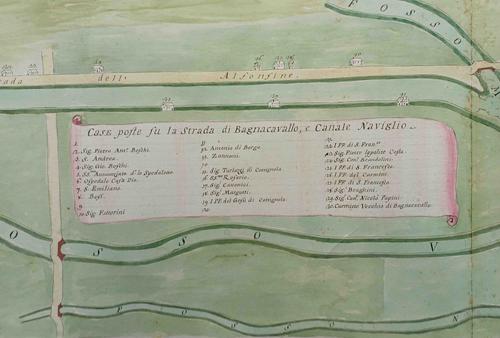 FOSSO
rada dell. Alfonsine.
Case poste su la Strada di Bagnacavallo, e Canale Naviglio.
1.
2. Sig. Pietro Ant.o Boschi.
3. S. Andrea.
4. Sig. Gio. Boschi.
5. SS.a Annunziata d.lo Spedalino.
6. Ospedale Casa Dio.
7. S. Emiliano.
8. Bosi.
9.
10. Sig. Fattorini
11.
12. Antonio di Borgo.
13. Zannoni.
14.
15. Sig. Turlaggi di Cotignola
16. SS.mo Rosario.
17. Sig. Canonici.
18. Sig. Margotti.
19. I PP. del Gesù di Cotignola.
20.
21.
22. I PP. di S. Fran.co
23. Sig. Pietro Ippolito Costa
24. Sig. Con. Brandolini.
25. I PP. di S. Francesco.
26. I PP. del Carmine.
27. I PP. di S. Francesco.
28. Sig. Braghini.
29. Sig. Cav. Nicolò Papini.
30. Carmine Vecchio di Bagnacavallo.
O SSO V
FOSSO N